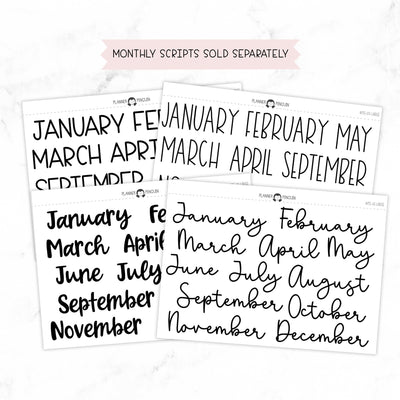 MONTHLY SCRIPTS SOLD SEPARATELY
PLANNER PENGUIN
JANUARY FE
MARCH APRI
SEPTEMBER
PLANNER PENGUIN
JANUARY FEBRUARY MAY
MARCH APRIL SEPTEMBER
PLANNER PENGUIN
January Fe
March Apri
June July
September
November
PLANNER PENGUIN
January February
March April May
June July August
September October
November December